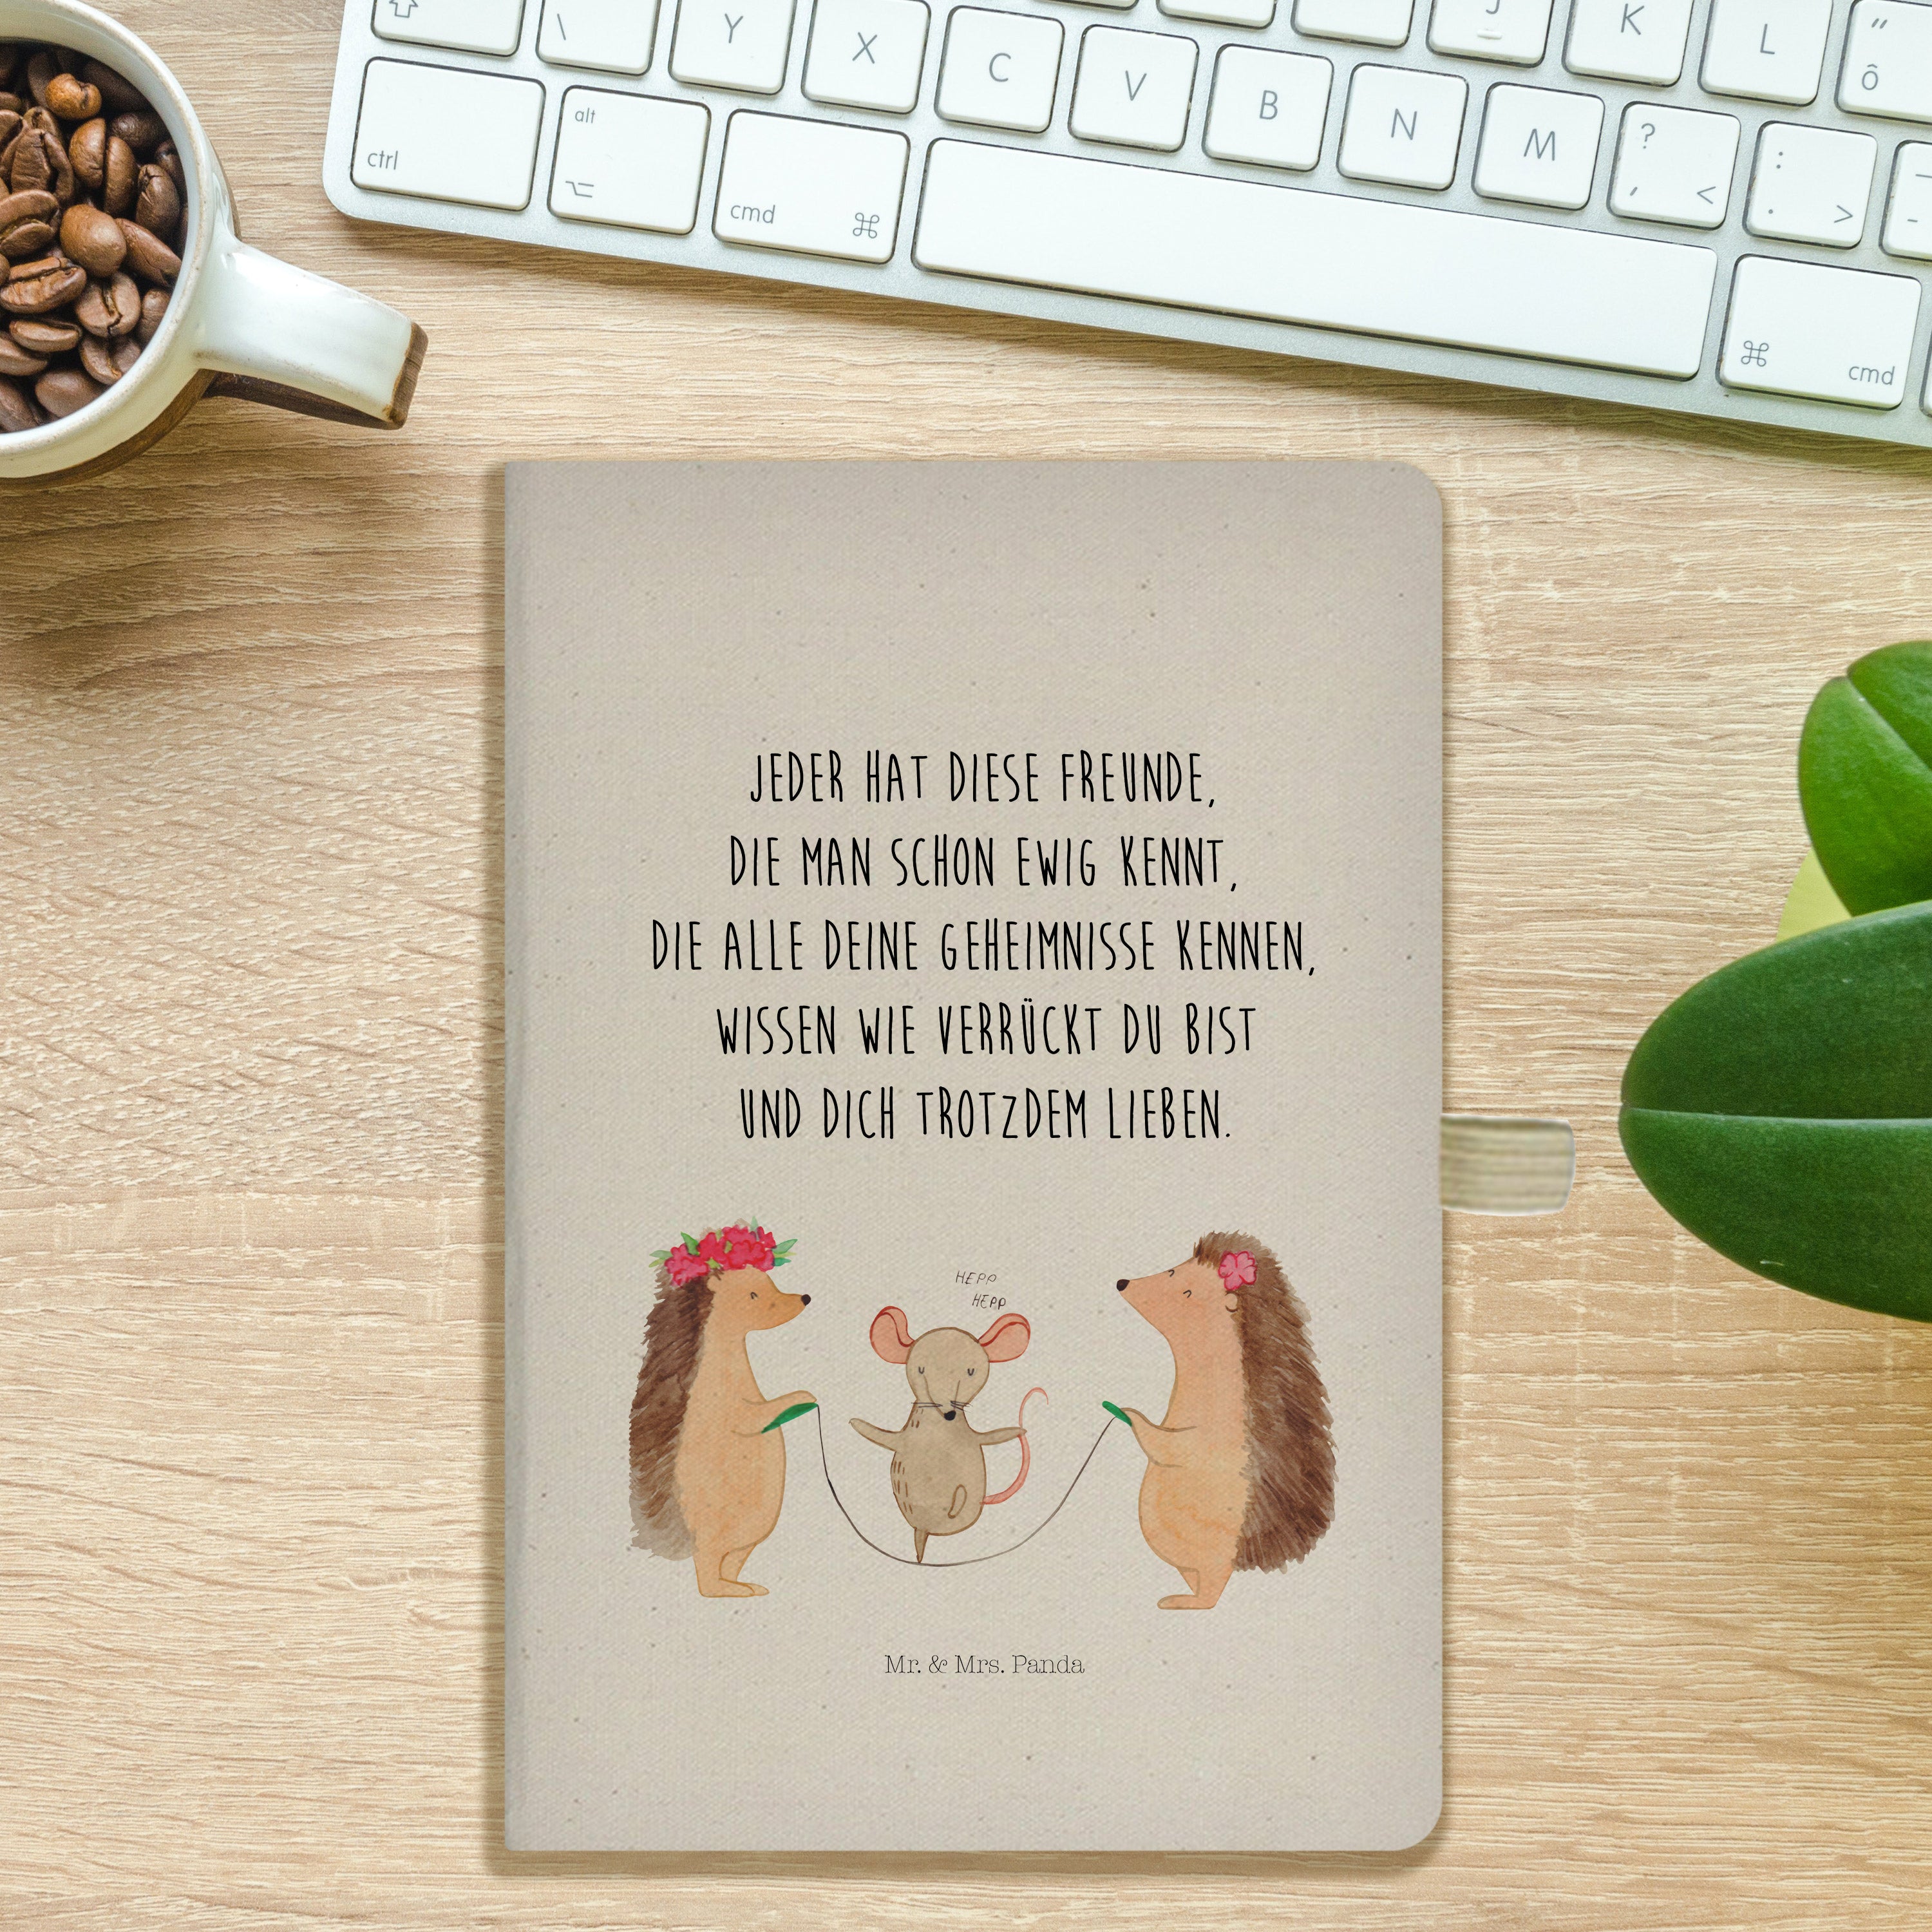 \ Y X C V B N M J K L " Ô
ctrl alt cmd ? , < : . > cmd
JEDER HAT DIESE FREUNDE,
DIE MAN SCHON EWIG KENNT,
DIE ALLE DEINE GEHEIMNISSE KENNEN,
WISSEN WIE VERRÜCKT DU BIST
UND DICH TROTZDEM LIEBEN.
HEPP
HEPP
Mr. & Mrs. Panda